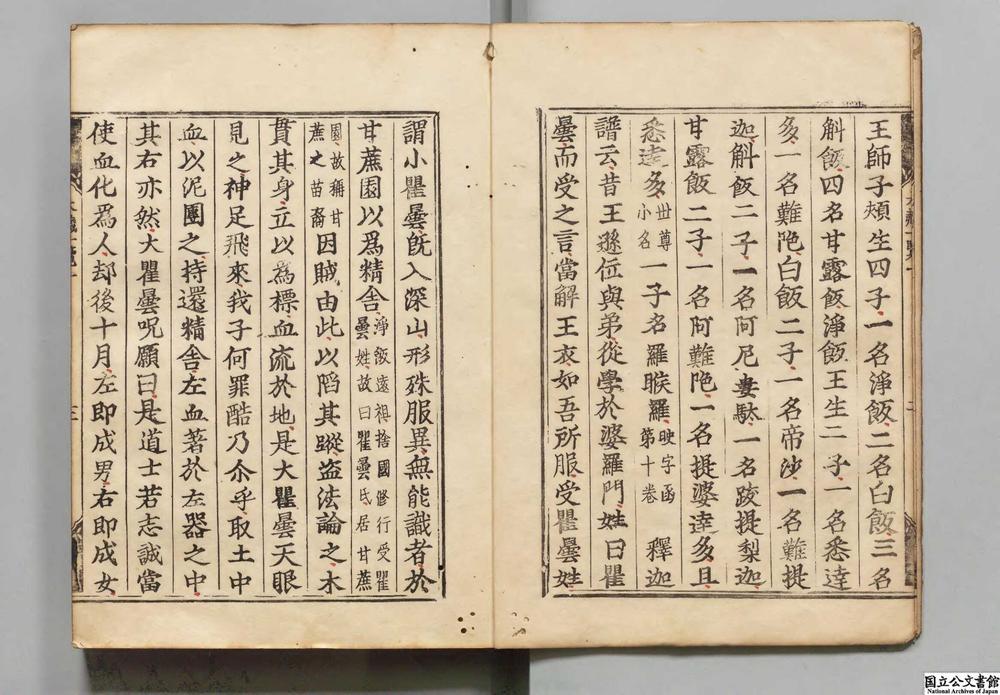 王師子頰生四子一名淨飯二名白飯三名
斛飯四名甘露飯淨飯王生二子一名悉達
多一名難陁白飯二子一名帝沙一名難提
迦斛飯二子一名阿尼婁馱一名跋提梨迦
甘露飯二子一名阿難陁一名提婆達多且
悉達多世尊小名一子名羅睺羅映字函第十卷釋迦
譜云昔王遜位與弟從學於婆羅門姓曰瞿
曇而受之言當解王衣如吾所服受瞿曇姓
謂小瞿曇旣入深山形殊服異無能識者於
甘蔗園以爲精舎淨飯遠祖捨國修行受瞿曇姓故曰瞿曇氏居甘蔗
園故稱甘蔗之苗裔因賊由此以陷其蹤盜法論之木
貫其身立以爲標血流於地是大瞿曇天眼
見之神足飛來我子何罪酷乃尒乎取土中
血以泥團之持還精舎左血著於左器之中
其右亦然大瞿曇呪願曰是道士若志誠當
使血化爲人却後十月左即成男右即成女
三
国立公文書館
National Archives of Japan